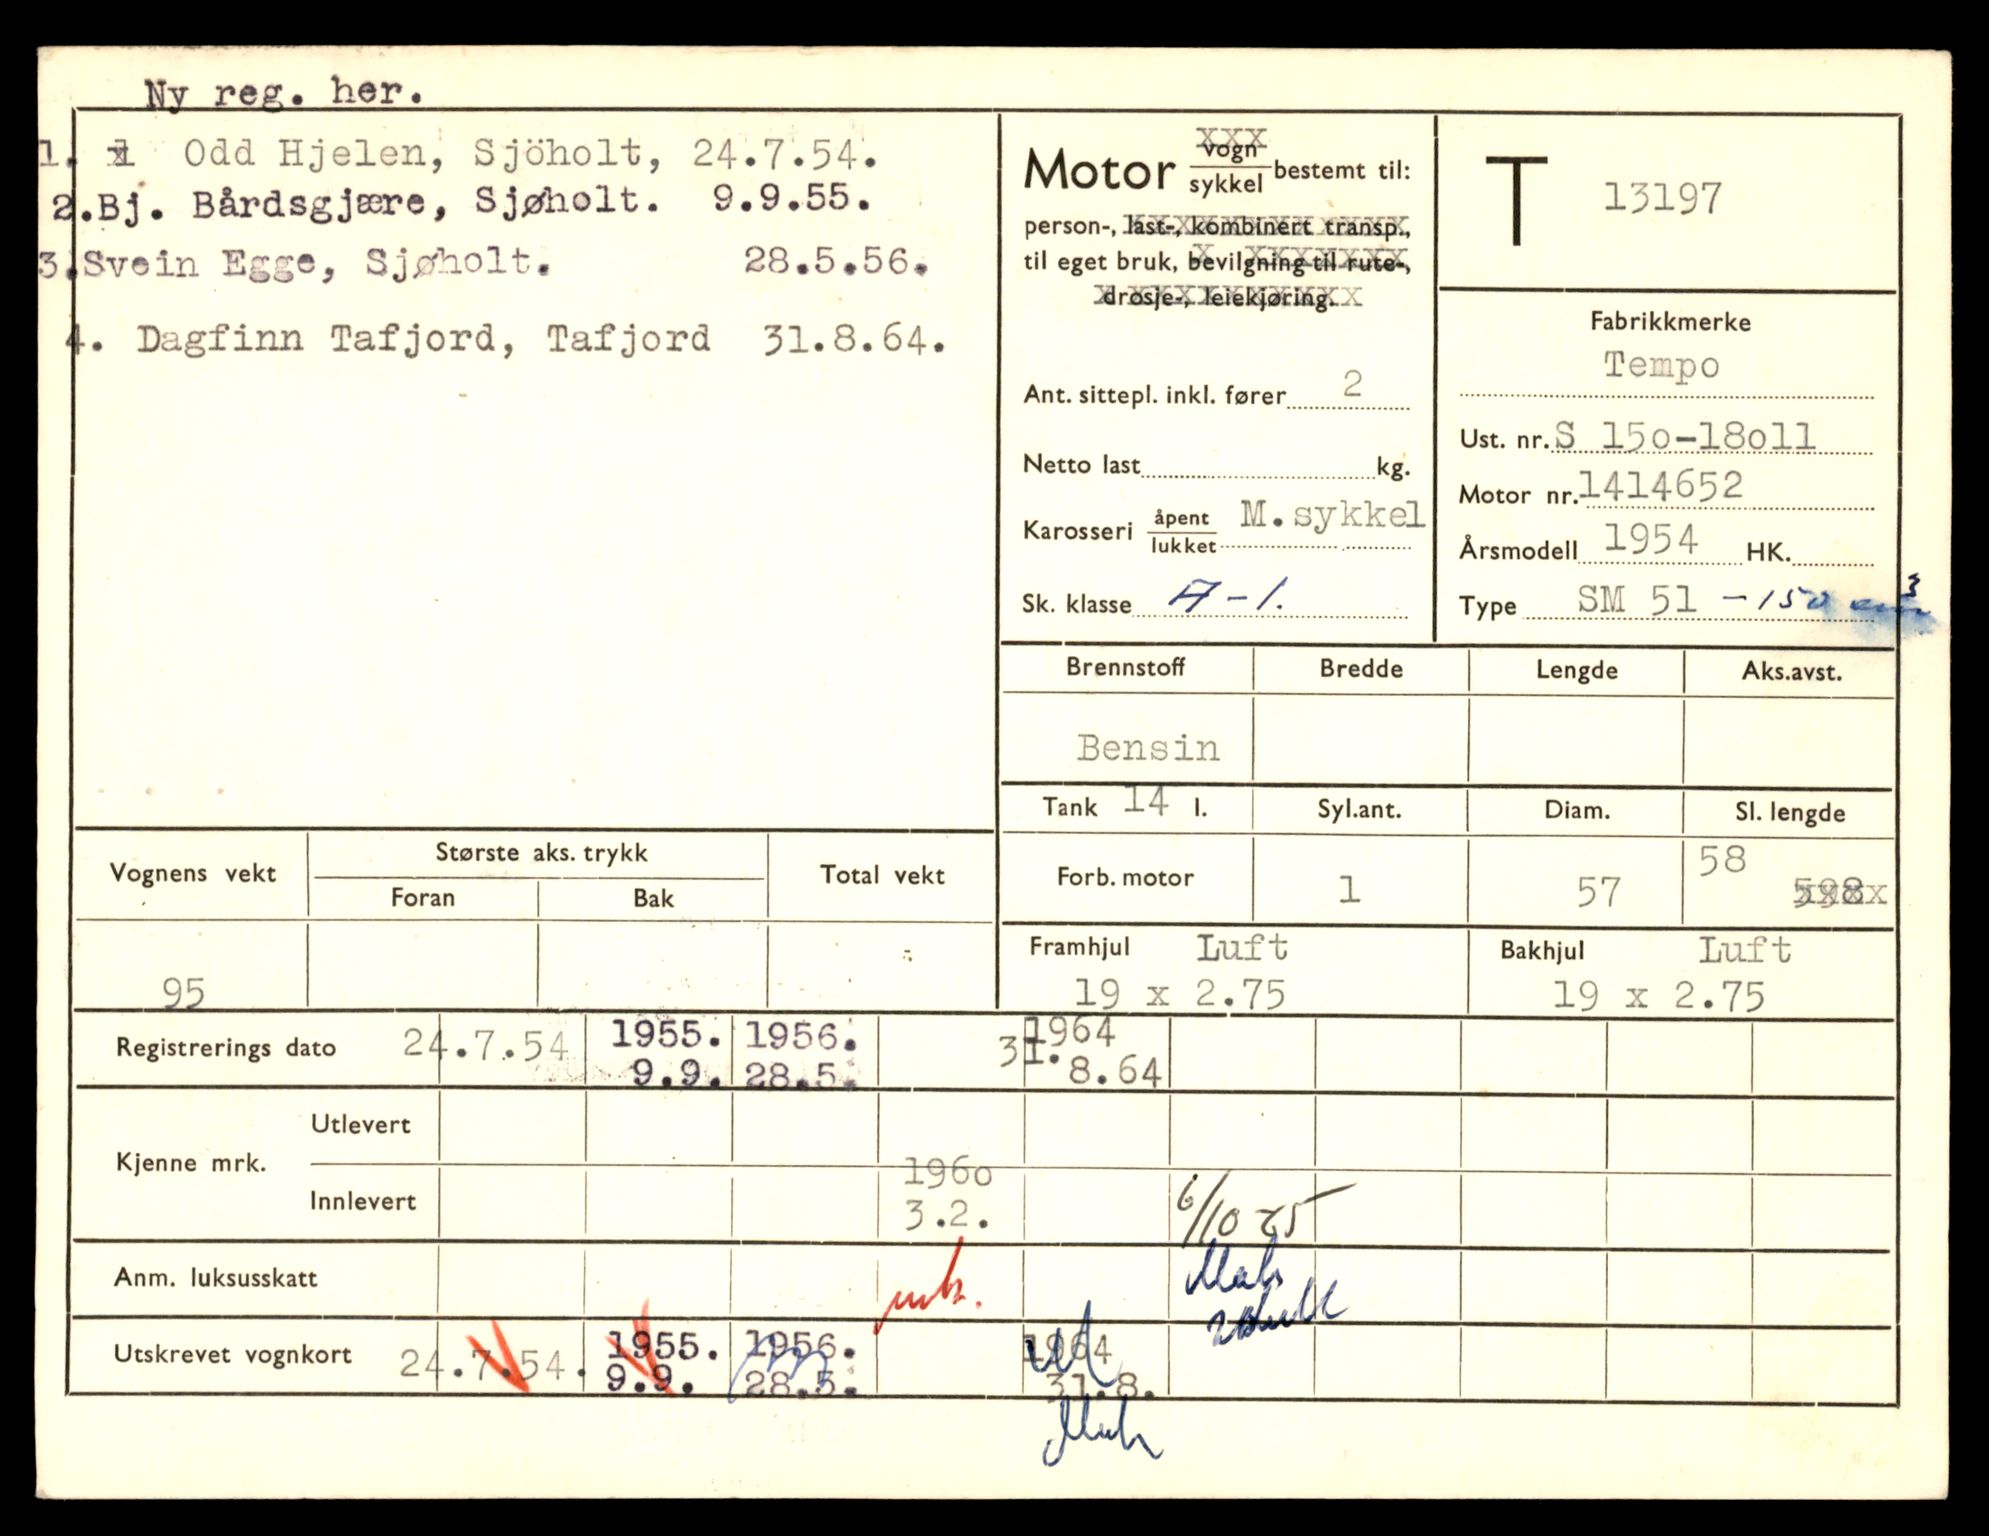 Ny reg. her.
1. Odd Hjelen, Sjöholt, 24.7.54.
2.Bj. Bårdsgjære, Sjøholt. 9.9.55.
3.Svein Egge, Sjøholt. 28.5.56.
4. Dagfinn Tafjord, Tafjord 31.8.64.
Motor vogn/sykkel bestemt til:
xxx
person-, last-, kombinert transp.,
til eget bruk, bevilgning til rute-,
drosje-, leiekjøring.
Ant. sittepl. inkl. fører 2
Netto last kg.
Karosseri åpent/lukket M.sykkel
Sk. klasse A-1.
T 13197
Fabrikkmerke
Tempo
Ust. nr. S 15o-18o11
Motor nr. 1414652
Årsmodell 1954 HK.
Type SM 51 - 150 cm³
Brennstoff Bredde Lengde Aks.avst.
Bensin
Tank 14 l. Syl.ant. Diam. Sl. lengde
Forb. motor 1 57 58 598
Framhjul Luft Bakhjul Luft
19 x 2.75 19 x 2.75
Vognens vekt Største aks. trykk Total vekt
Foran Bak
95
Registrerings dato 24.7.54 1955. 9.9. 1956. 28.5. 1964 31. 8.64
Kjenne mrk. Utlevert
Innlevert 1960 3.2. 6/10 75
Anm. luksusskatt
Utskrevet vognkort 24.7.54. 1955. 9.9. 1956. 28.5. 1964 31.8.